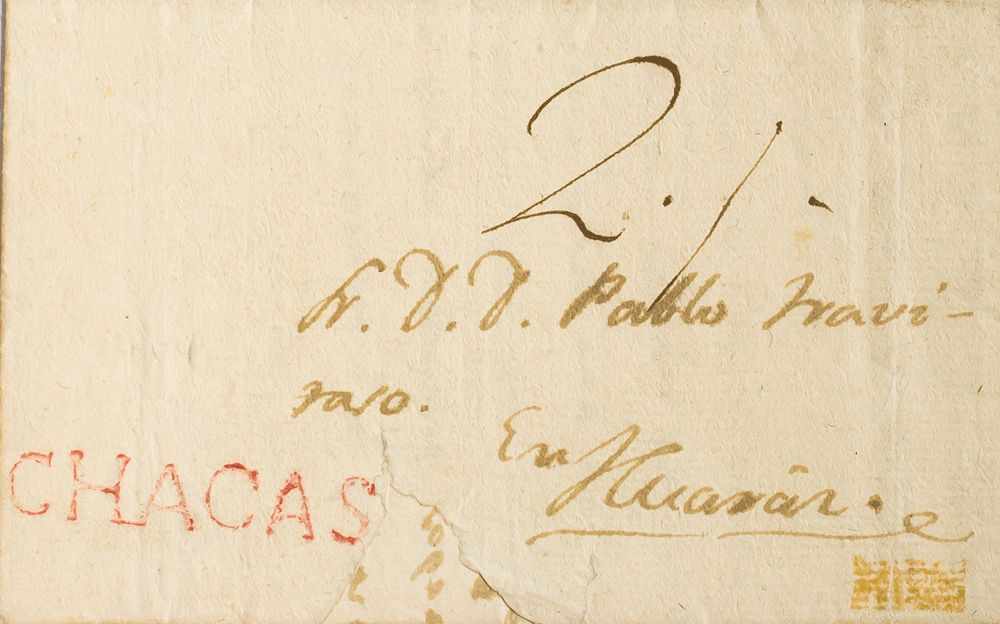 2./.
Sr. D. D. Pablo Travi-
raso.
En Huaráz.
CHACAS